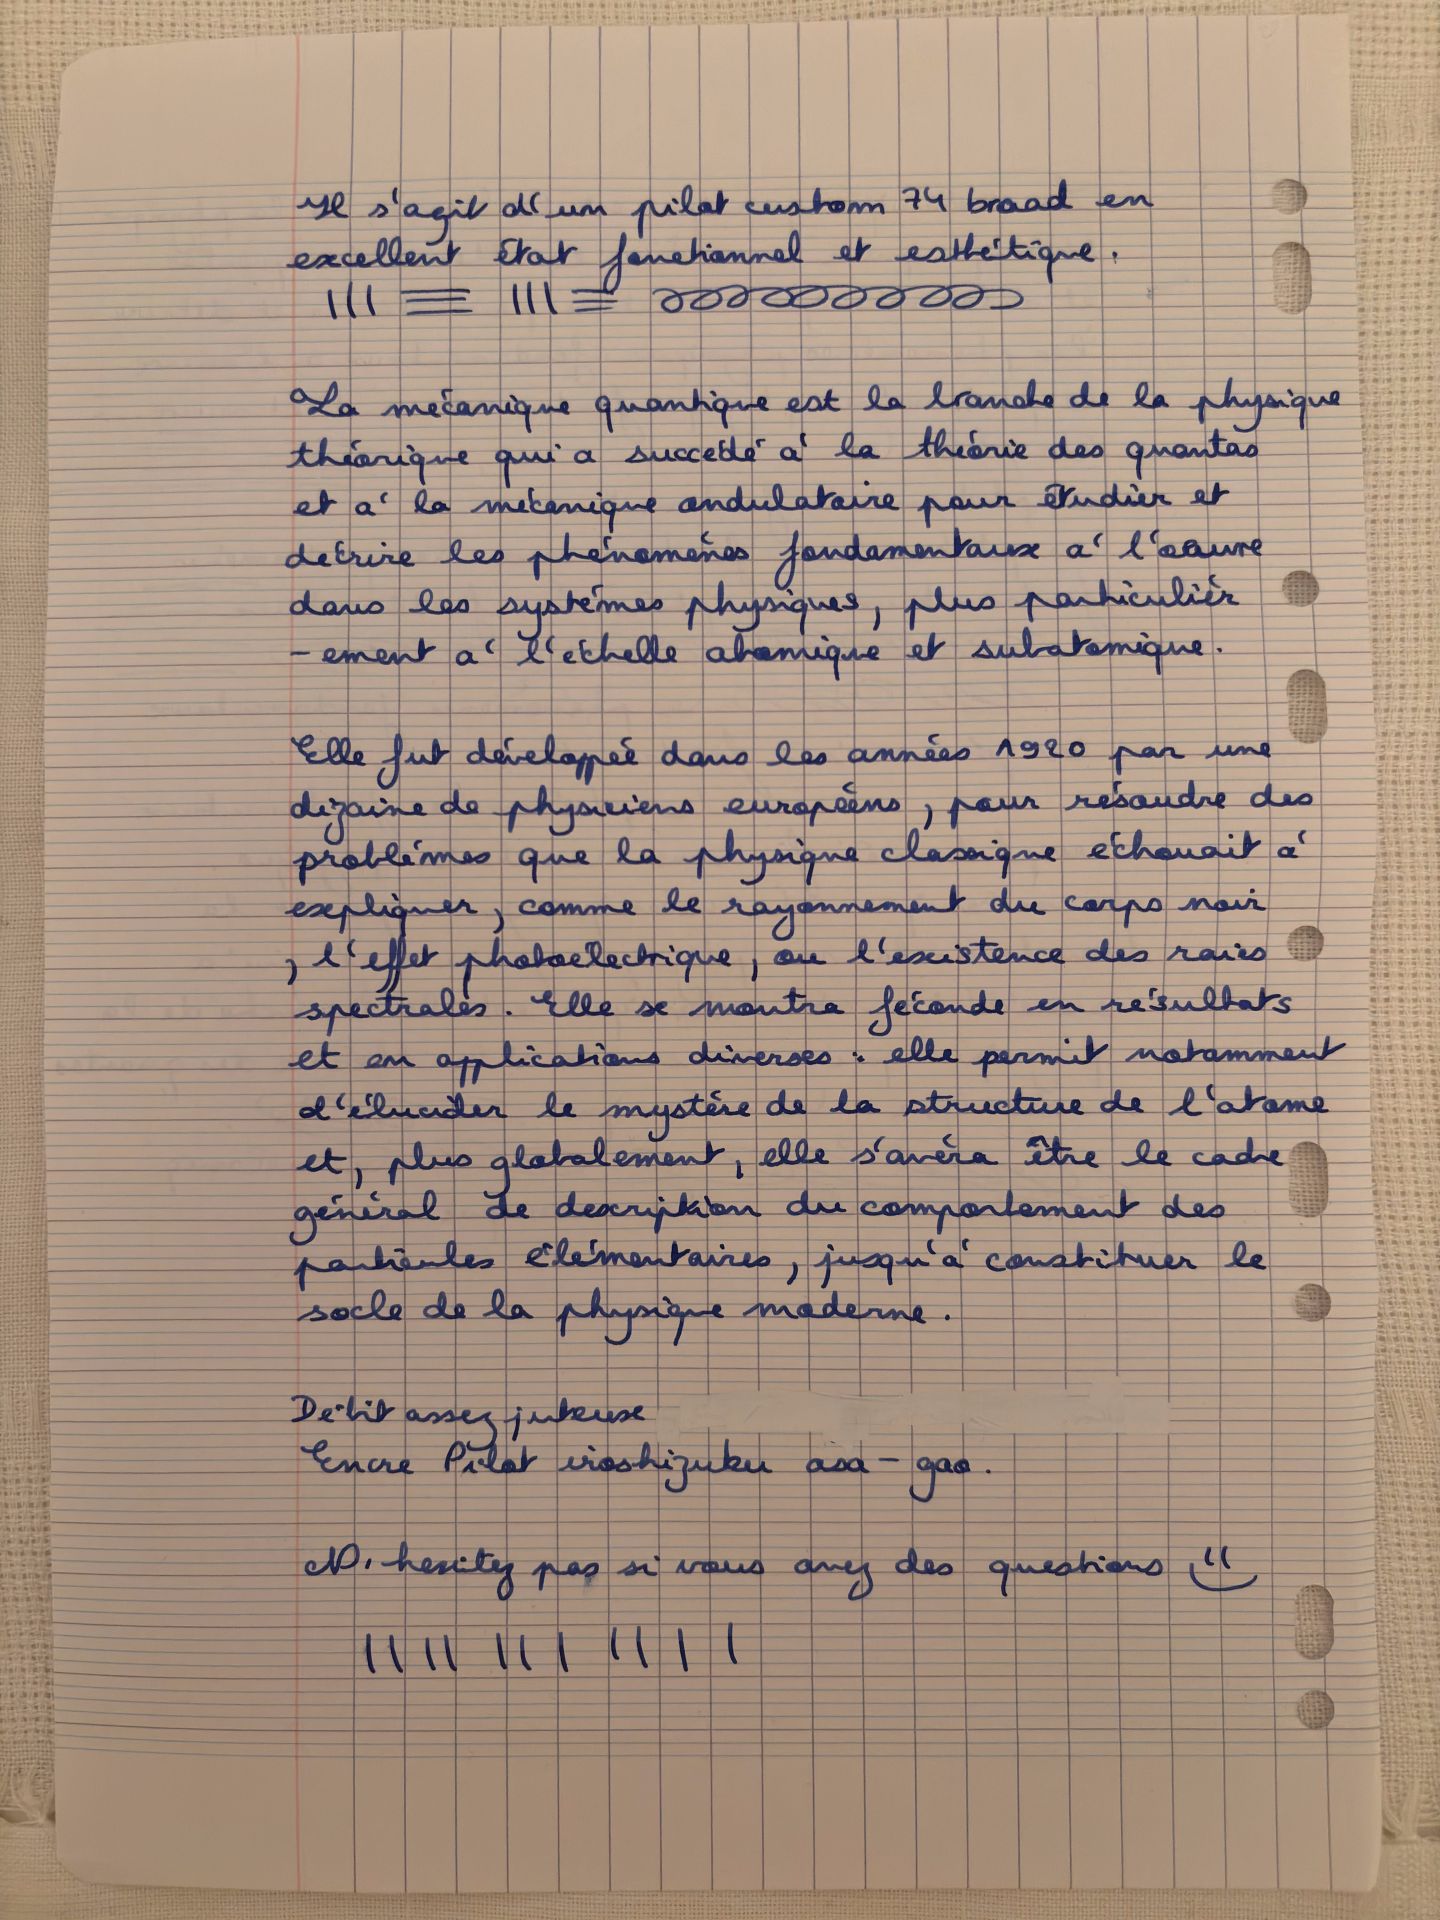 Il s'agit d'un pilot custom 74 broad en
excellent état fonctionnel et esthétique.
La mécanique quantique est la branche de la physique
théorique qui a succédé à la théorie des quantas
et à la mécanique ondulatoire pour étudier et
décrire les phénomènes fondamentaux à l'œuvre
dans les systèmes physiques, plus particulièr
-ement à l'échelle atomique et subatomique.
Elle fut développée dans les années 1920 par une
dizaine de physiciens européens, pour résoudre des
problèmes que la physique classique échouait à
expliquer, comme le rayonnement du corps noir
, l'effet photoélectrique, ou l'existence des raies
spectrales. Elle se montra féconde en résultats
et en applications diverses : elle permit notamment
d'élucider le mystère de la structure de l'atome
et, plus globalement, elle s'avéra être le cadre
général de description du comportement des
particules élémentaires, jusqu'à constituer le
socle de la physique moderne.
Débit assez juteuse
Encre Pilot iroshizuku asa-gao.
N'hesitez pas si vous avez des questions